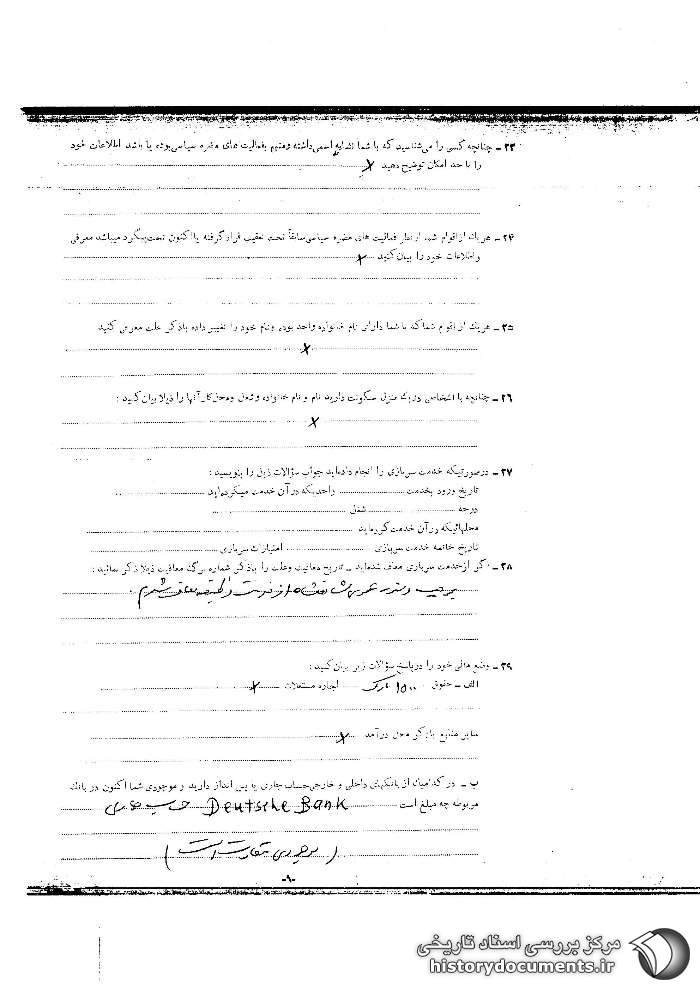 ۲۳ – چنانچه کسی را می‌شناسید که با شما تشابه اسمی داشته ومتهم بفعالیت های مضره سیاسی بوده یا باشد اطلاعات خود
را تا حد امکان توضیح دهید x
۲۴ – هر یك از اقوام شما از نظر فعالیت های مضره سیاسی سابقاً تحت تعقیب قرار گرفته یا اکنون تحت پیگرد میباشد معرفی
و اطلاعات خود را بیان کنید x
۲۵ – هر یك از اقوام شما که با شما دارای نام خانواده واحد بوده ونام خود را تغییر داده با ذکر علت معرفی کنید
x
۲۶ – چنانچه با اشخاصی در یك منزل سکونت دارید نام و نام خانواده و شغل ومحل کار آنها را ذیلا بیان کنید :
x
۲۷ – درصورتیکه خدمت سربازی را انجام داده‌اید جواب سؤالات ذیل را بنویسید :
تاریخ ورود بخدمت واحدیکه در آن خدمت میکرده‌اید
درجه شغل
محلهائیکه در آن خدمت کرده‌اید
تاریخ خاتمه خدمت سربازی امتیازات سربازی
۲۸ – اگر از خدمت سربازی معاف شده‌اید – تاریخ معافیت وعلت را با ذکر شماره برگ معافیت ذیلا ذکر نمائید :
از خدمت وظیفه معاف شدم
۲۹ – وضع مالی خود را در پاسخ سؤالات زیر بیان کنید :
الف – حقوق ۱۵۰۰ مارک اجاره مستغلات x
سایر منابع با ذکر محل درآمد x
ب – در کدامیك از بانکهای داخلی و خارجی حساب جاری یا پس انداز دارید و موجودی شما اکنون در بانك
مربوطه چه مبلغ است Deutsche Bank حساب جاری
(موجودی متفاوت است)
-۶-
مرکز بررسی اسناد تاریخی
historydocuments.ir